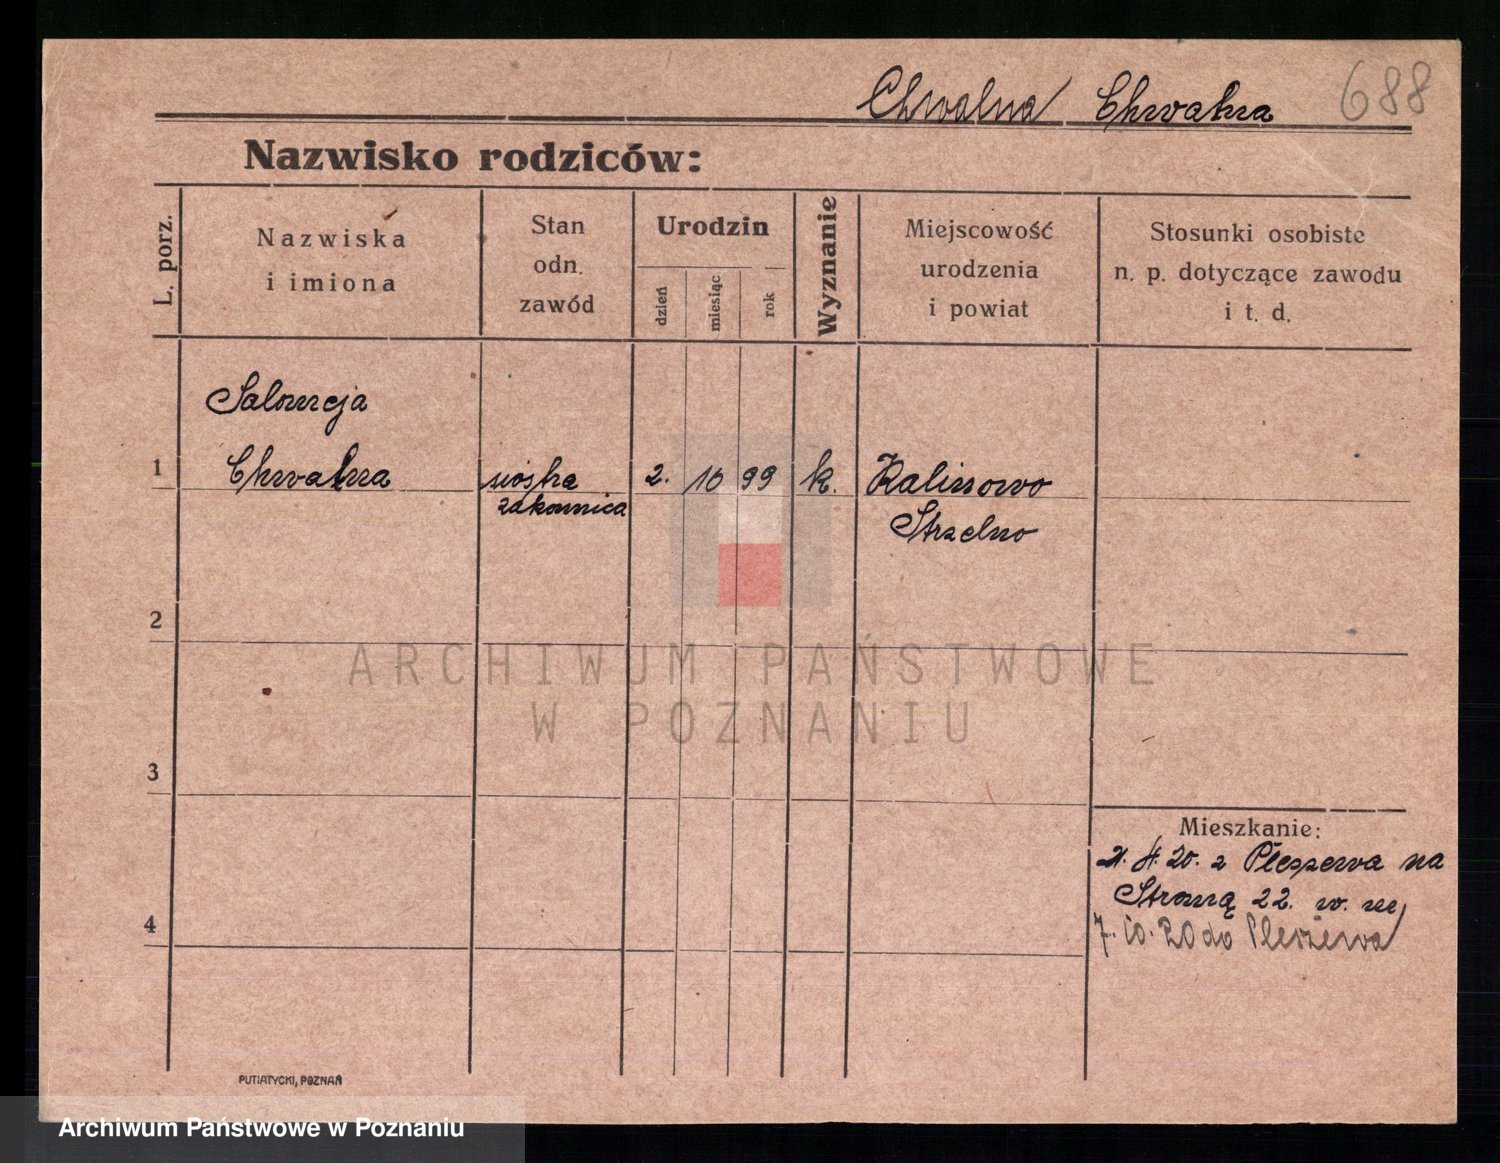 Chwalna Chwalna 688
Nazwisko rodziców:
L. porz.
Nazwiska
i imiona
Stan
odn.
zawód
Urodzin
dzień
miesiąc
rok
Wyznanie
Miejscowość
urodzenia
i powiat
Stosunki osobiste
n. p. dotyczące zawodu
i t. d.
Salomeja
1 Chwalna siostra 2. 10 99 k. Kalinowo
zakonnica Strzelno
2
ARCHIWUM PAŃSTWOWE
W POZNANIU
3
Mieszkanie:
4. 20. z Pleszewa na
Stromą 22. w. m
4
7. 10. 20 do Pleszewa
PUTIATYCKI, POZNAŃ
Archiwum Państwowe w Poznaniu